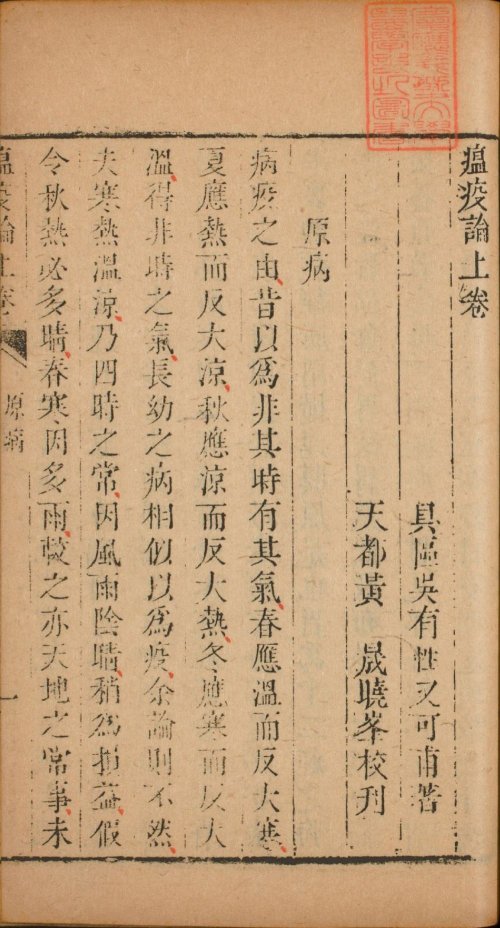 瘟疫論上卷
具區吳有性又可甫著
天都黃晟曉峯校刊
原病
病疫之由昔以為非其時有其氣春應溫而反大寒
夏應熱而反大涼秋應涼而反大熱冬應寒而反大
溫得非時之氣長幼之病相似以為疫余論則不然
夫寒熱溫涼乃四時之常因風雨陰晴稍為損益假
令秋熱必多晴春寒因多雨較之亦天地之常事未
瘟疫論上卷
原病
一